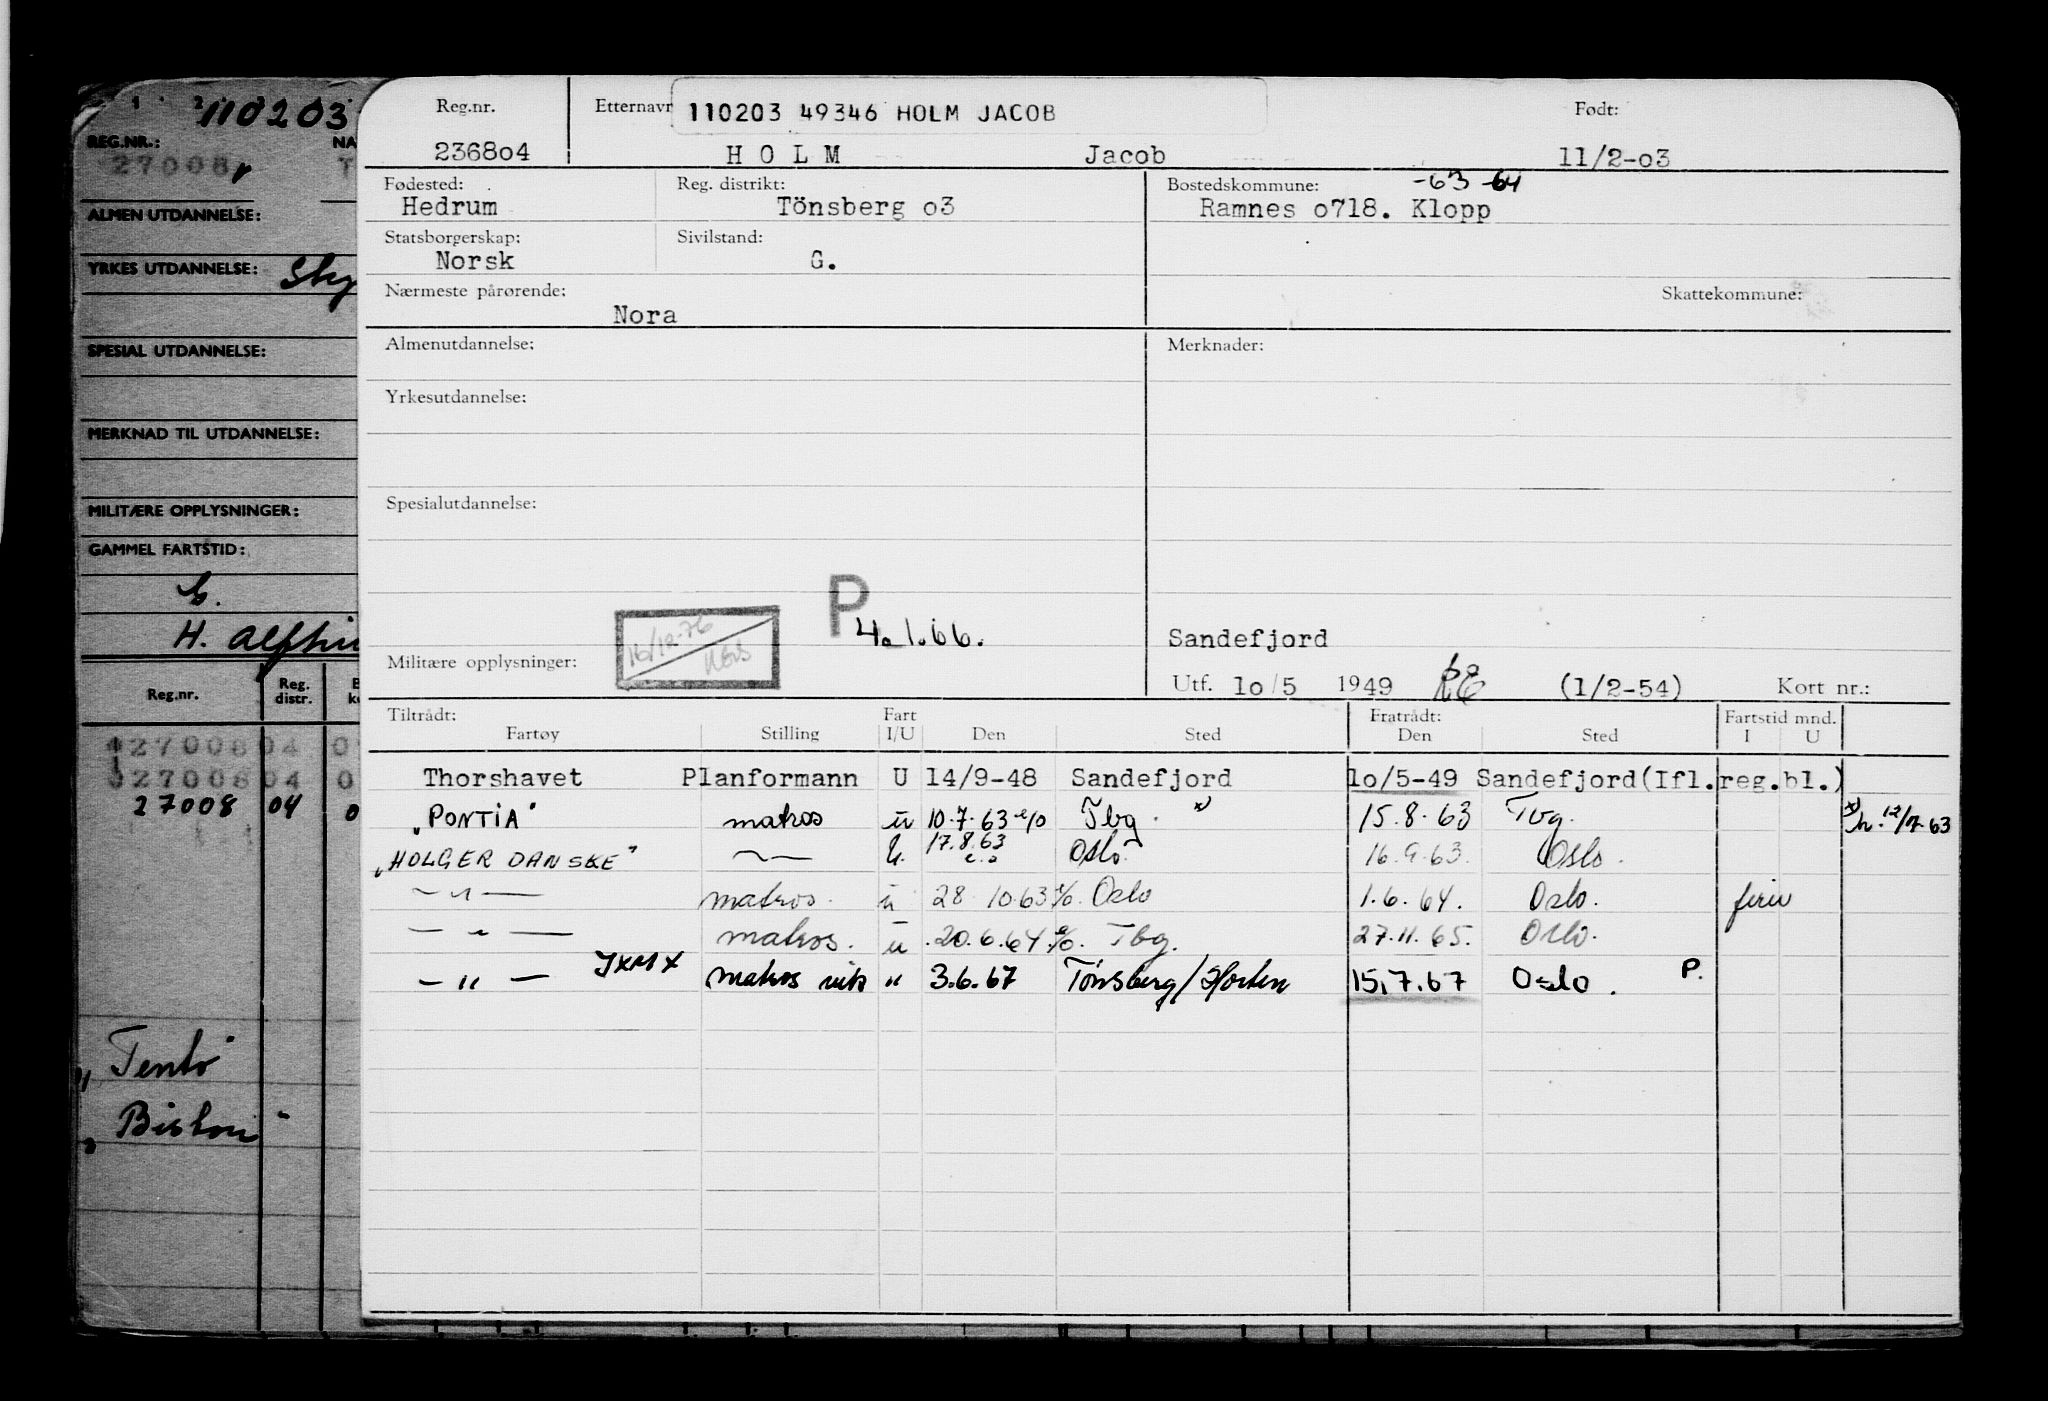 1 2 110203
REG.NR.: NA
27008 T
ALMEN UTDANNELSE:
YRKES UTDANNELSE:
SPESIAL UTDANNELSE:
MERKNAD TIL UTDANNELSE:
MILITÆRE OPPLYSNINGER:
GAMMEL FARTSTID:
H.
Reg.nr. Reg. distr.
27008 04 0
27008 04 0
27008 04 0
"Tento"
"Biston"
Reg.nr. Etternavn 110203 49346 HOLM JACOB Født:
2368o4 H O L M Jacob 11/2-o3
Fødested: Reg. distrikt: Bostedskommune: -63 -64
Hedrum Tönsberg o3 Ramnes o718. Klopp
Statsborgerskap: Sivilstand:
Norsk G.
Nærmeste pårørende: Skattekommune:
Nora
Almenutdannelse: Merknader:
Yrkesutdannelse:
Spesialutdannelse:
P 4.1.66.
16/12-76
Sandefjord
Militære opplysninger:
Utf. 1o/5 1949 (1/2-54) Kort nr.:
Tiltrådt: Fart Fratrådt: Fartstid mnd.
Fartøy Stilling I/U Den Sted Den Sted I U
Thorshavet Planformann U 14/9-48 Sandefjord 1o/5-49 Sandefjord(Ifl.reg.bl.)
"PONTIA" matros u 10.7.63 e/o Tbg. x) 15.8.63 Tbg. x) 12/7-63
"HOLGER DANSKE" —〃— U. 17.8.63 e.o Oslo. 16.9.63. Oslo.
—〃— matros. u 28.10.63 e/o. Oslo 1.6.64. Oslo. ferie
—〃— matros. u 20.6.64 e/o. Tbg. 27.11.65. Oslo.
—〃— JXMX matros vik " 3.6.67 Tönsberg/Horten 15.7.67 Oslo. P.